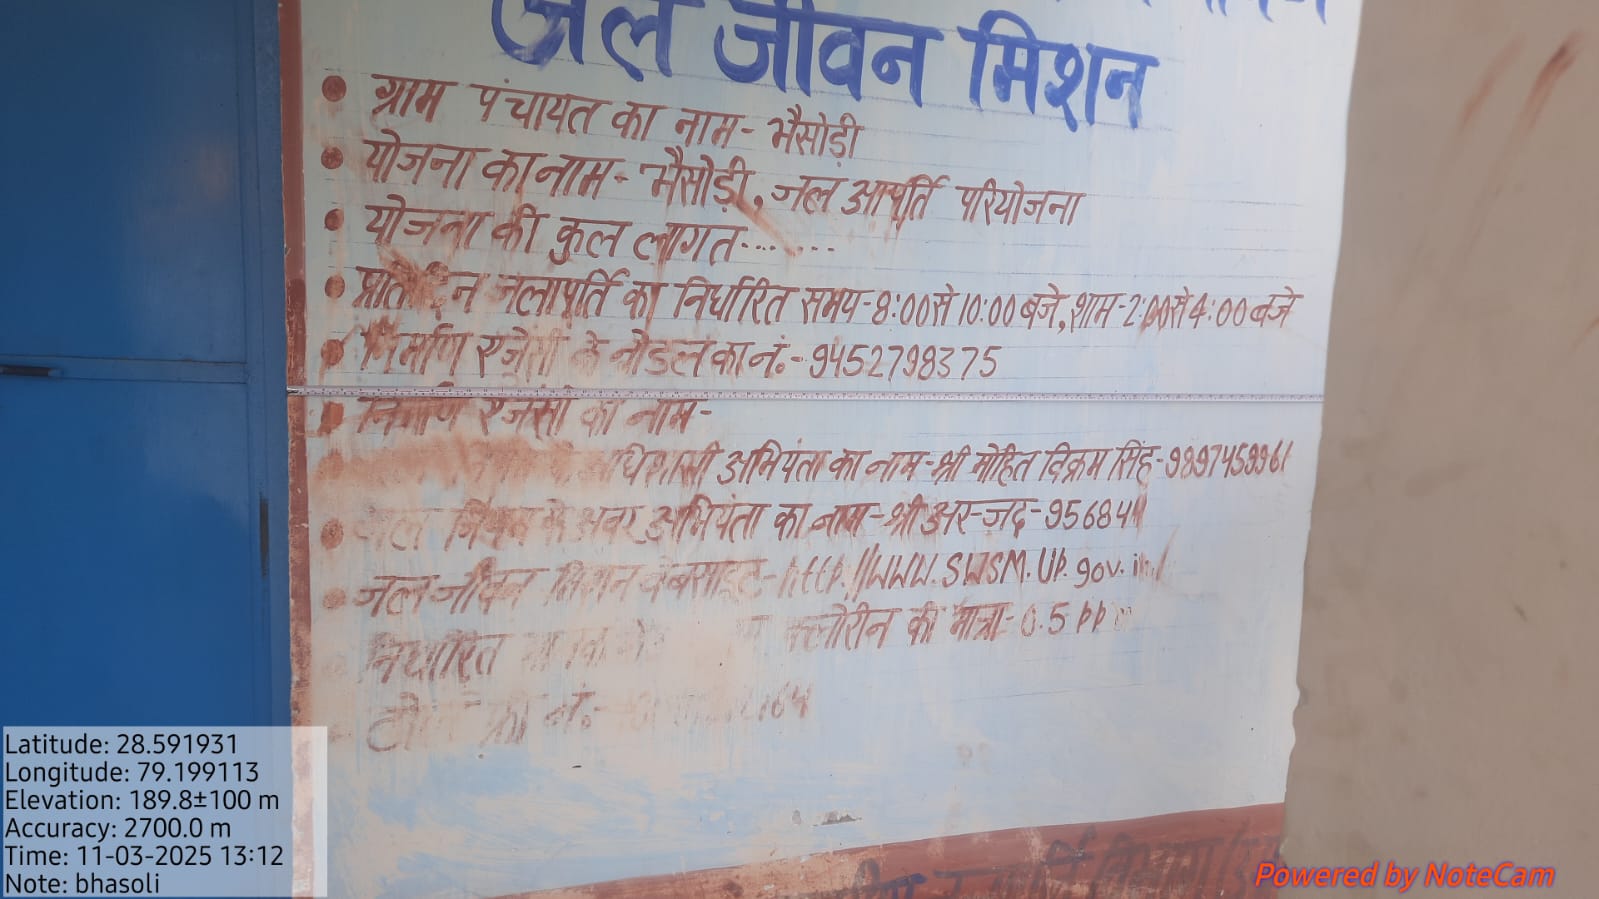 जल जीवन मिशन
• ग्राम पंचायत का नाम- भैसोड़ी
• योजना का नाम- भैसोड़ी, जल आपूर्ति परियोजना
• योजना की कुल लागत.......
• प्रतिदिन जलापूर्ति का निर्धारित समय-8:00 से 10:00 बजे, शाम-2:00 से 4:00 बजे
• निर्माण एजेंसी के नोडल का नं.- 9452798375
• निर्माण एजेंसी का नाम-
अधिशासी अभियंता का नाम-श्री मोहित विक्रम सिंह-9897459961
• जल निगम के अवर अभियंता का नाम-श्री
• जल जीवन मिशन वेबसाइट-http://www.SWSM.UP.gov.in/
निर्धारित क्लोरीन की मात्रा-0.5 PPm
फ्री नं.
Latitude: 28.591931
Longitude: 79.199113
Elevation: 189.8±100 m
Accuracy: 2700.0 m
Time: 11-03-2025 13:12
Note: bhasoli
Powered by NoteCam